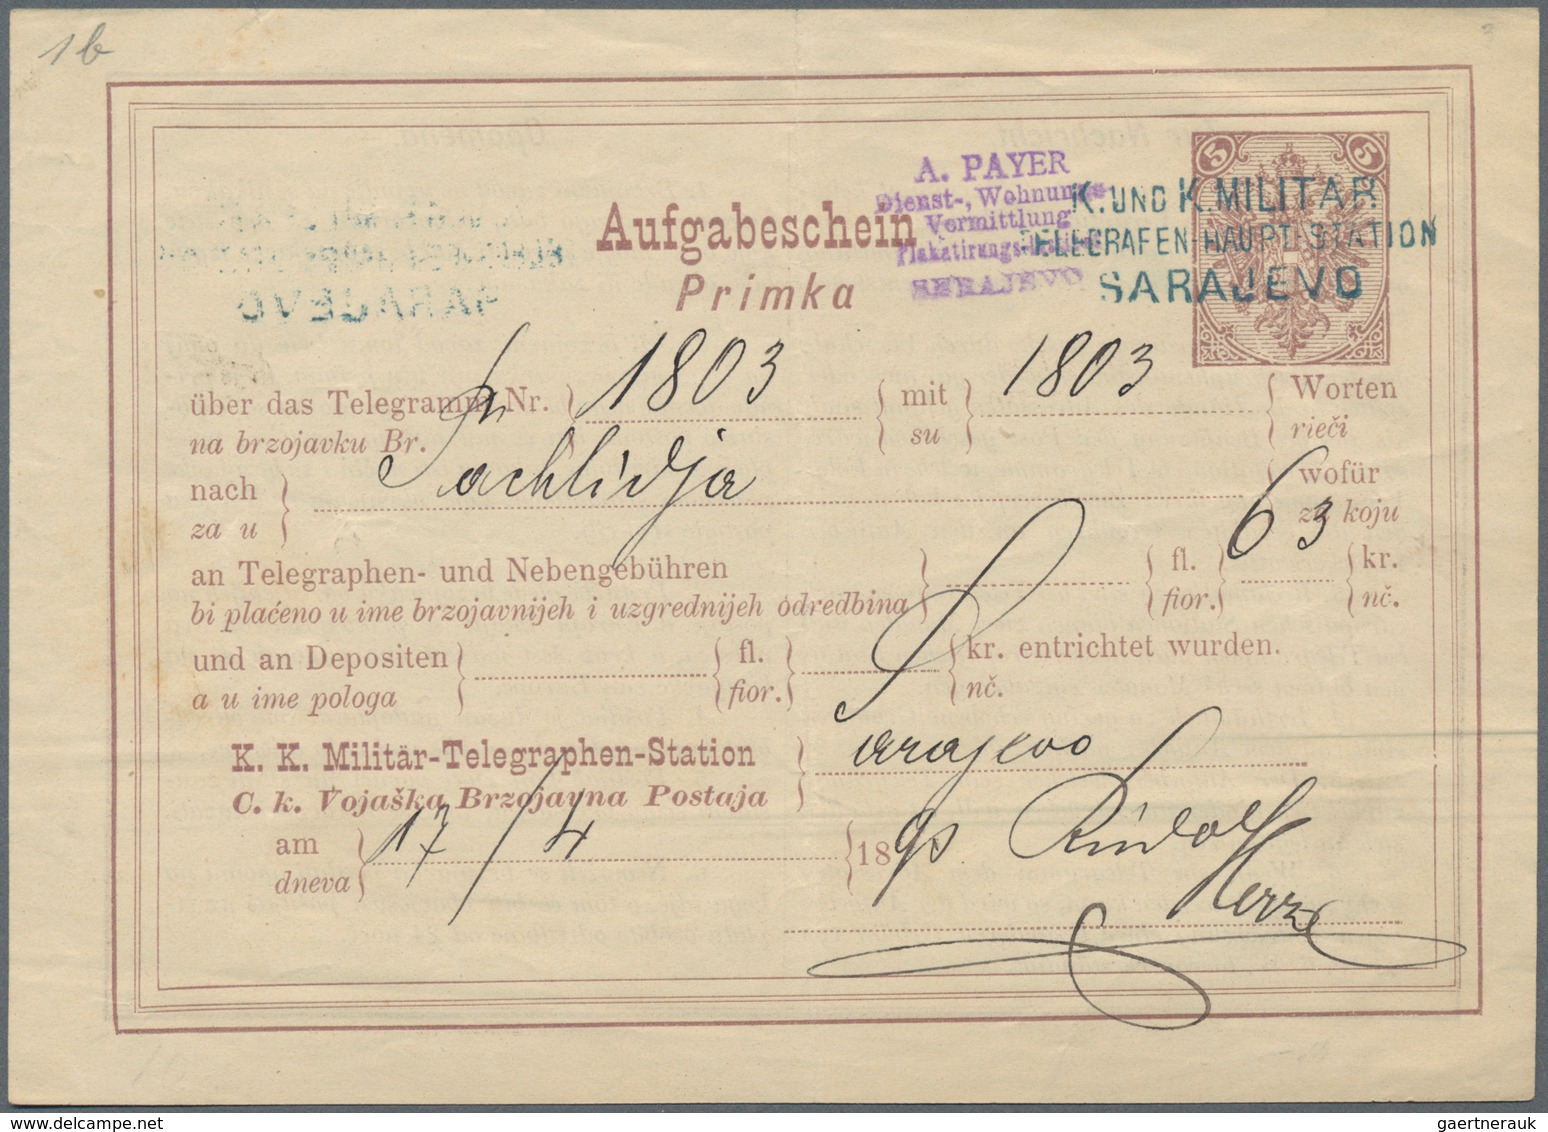 1b
5 5
A. PAYER
Dienst-, Wohnungs-
Vermittlung
Plakatirungs-
SERAJEVO
K. UND K. MILITAR
TELEGRAFEN-HAUPT-STATION
SARAJEVO
Aufgabeschein
Primka
über das Telegramm Nr. 1803 mit 1803 Worten
na brzojavku Br. su rieči
nach Sachlidja wofür
za u za koju
an Telegraphen- und Nebengebühren fl. 63 kr.
bi plaćeno u ime brzojavnijeh i uzgrednijeh odredbina fior. nč.
und an Depositen fl. kr. entrichtet wurden.
a u ime pologa fior. nč.
K. K. Militär-Telegraphen-Station Sarajevo
C. k. Vojaška Brzojavna Postaja
am 17/4 189
dneva
Rudolf
gaertnerauk
gaertnerauk.com